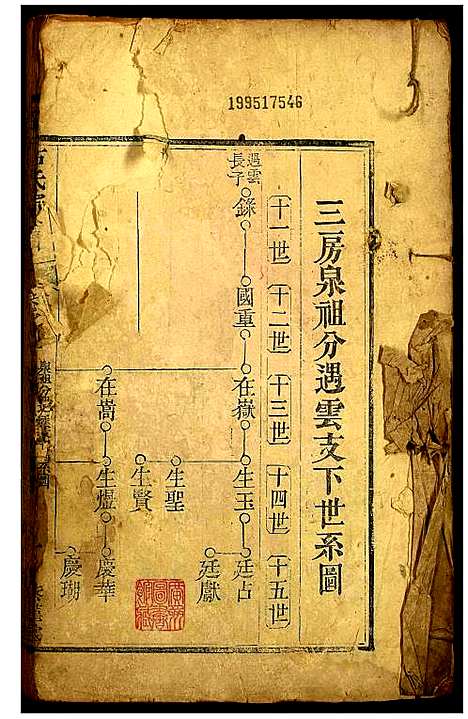 199517546
三房泉祖分遇雲支下世系圖
十一世 十二世 十三世 十四世 十五世
遇雲長子 錄 國重 在嶽 生玉 廷占
廷獻
生聖
生賢
在嵩 生煜 慶華
慶瑚